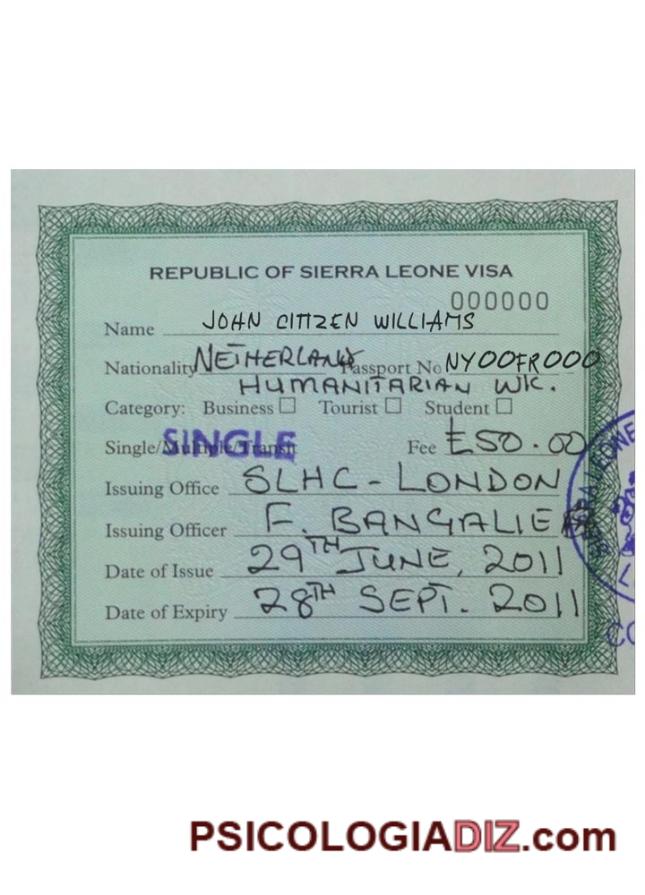 REPUBLIC OF SIERRA LEONE VISA
000000
Name JOHN CITIZEN WILLIAMS
Nationality NETHERLAND Passport No NY00FR000
HUMANITARIAN WK.
Category: Business Tourist Student
Single/Multiple/Transit SINGLE Fee £50.00
Issuing Office SLHC - LONDON
Issuing Officer F. BANGALIE
Date of Issue 29TH JUNE, 2011
Date of Expiry 28TH SEPT. 2011
PSICOLOGIADIZ.com